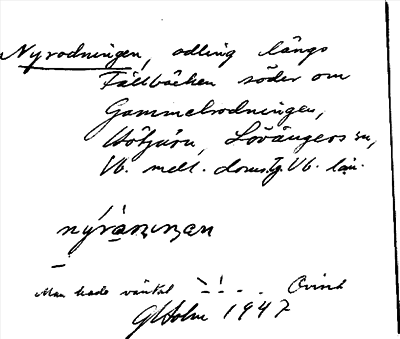 Nyrodningen, odling längs
Fällbäcken söder om
Gammelrodningen,
Lövångers sn,
Vb. mell. doms. Vb. län.
Man hade väntat
GHolm 1947